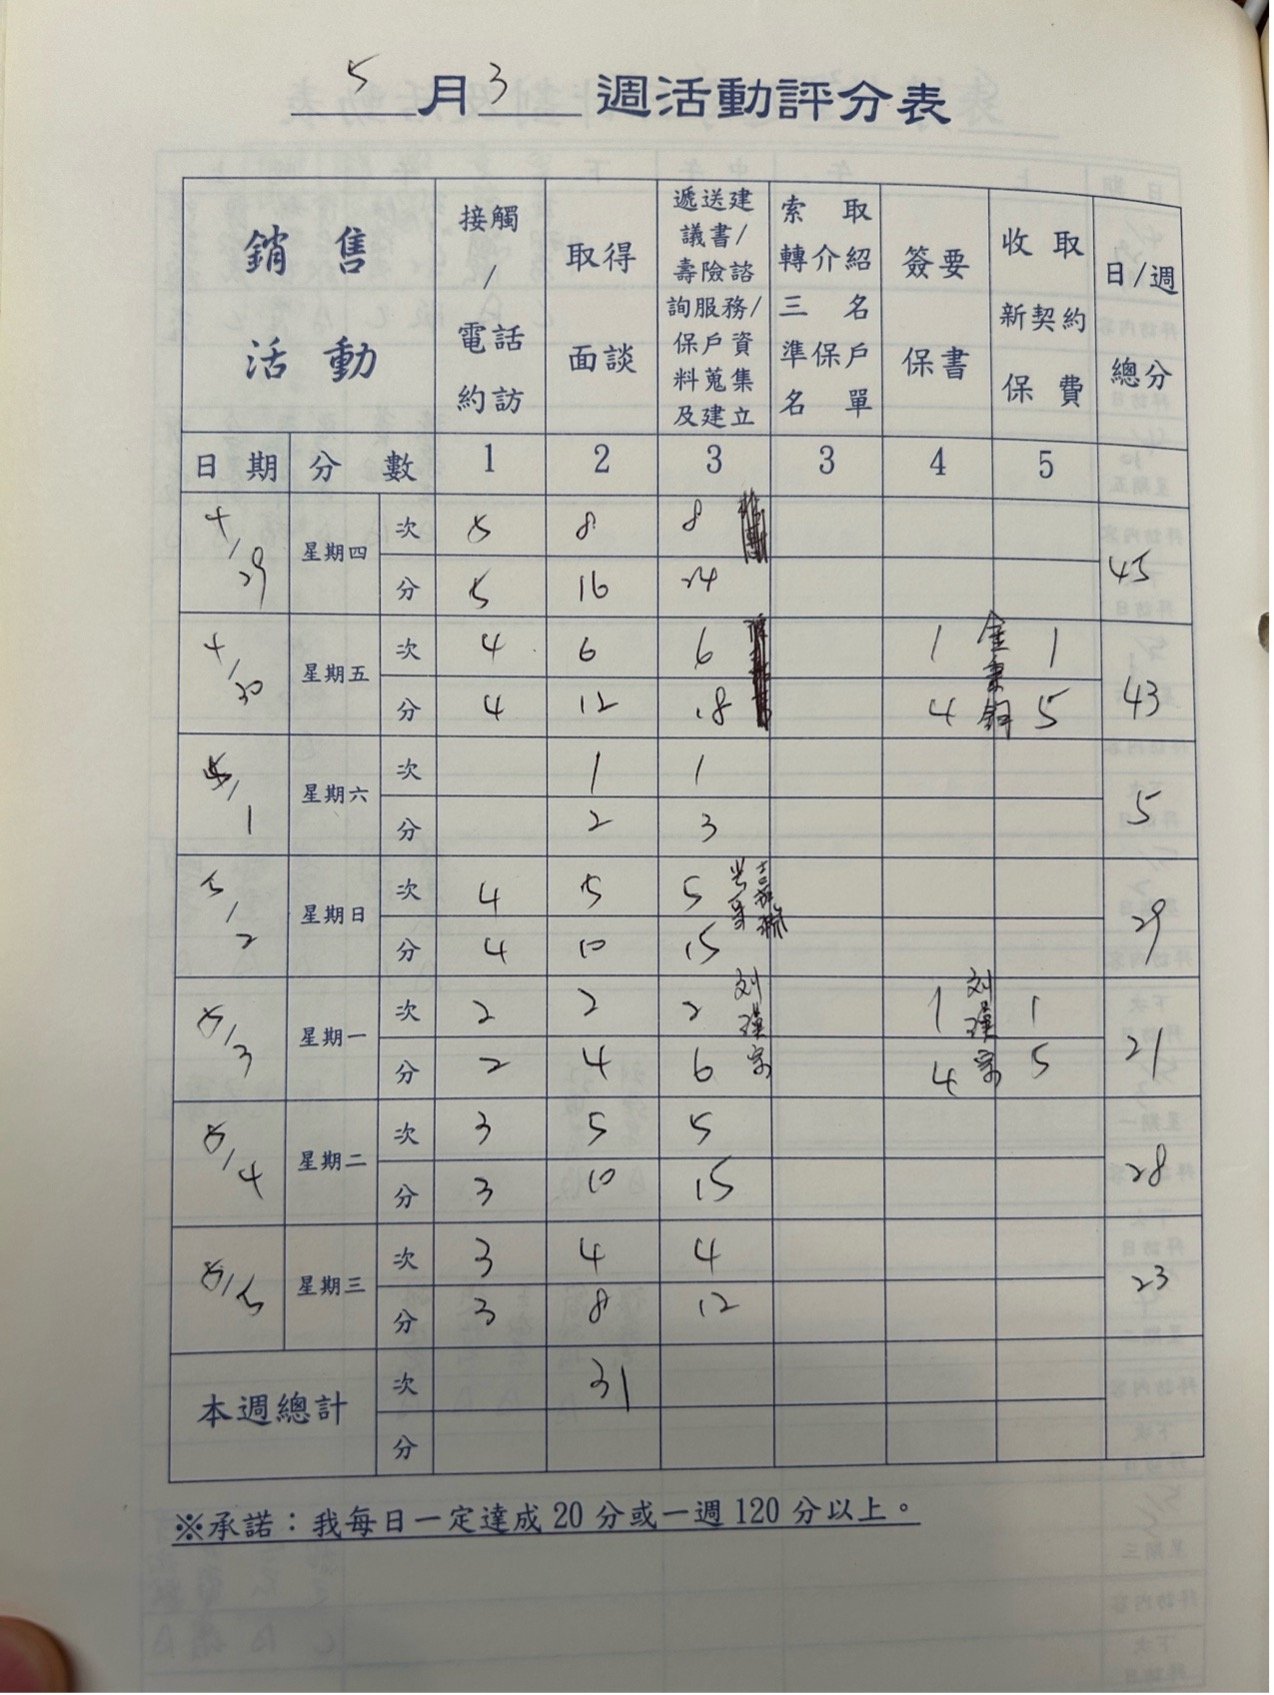 5月3週活動評分表
銷售活動 接觸/電話約訪 取得面談 遞送建議書/壽險諮詢服務/保戶資料蒐集及建立 索取轉介紹三名準保戶名單 簽要保書 收取新契約保費 日/週總分
日期 分數 1 2 3 3 4 5
4/29 星期四 次 5 8 8
分 5 16 24 45
4/30 星期五 次 4 6 6 1 1
分 4 12 18 4 5 43
5/1 星期六 次 1 1
分 2 3 5
5/2 星期日 次 4 5 5
分 4 10 15 29
5/3 星期一 次 2 2 2 刘瑾宗 1 刘瑾宗 1
分 2 4 6 4 5 21
5/4 星期二 次 3 5 5
分 3 10 15 28
5/5 星期三 次 3 4 4
分 3 8 12 23
本週總計 次 31
分
※承諾：我每日一定達成20分或一週120分以上。